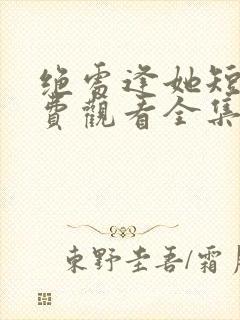 绝雪逢她短
費觀看全集
東野圭吾/霜月